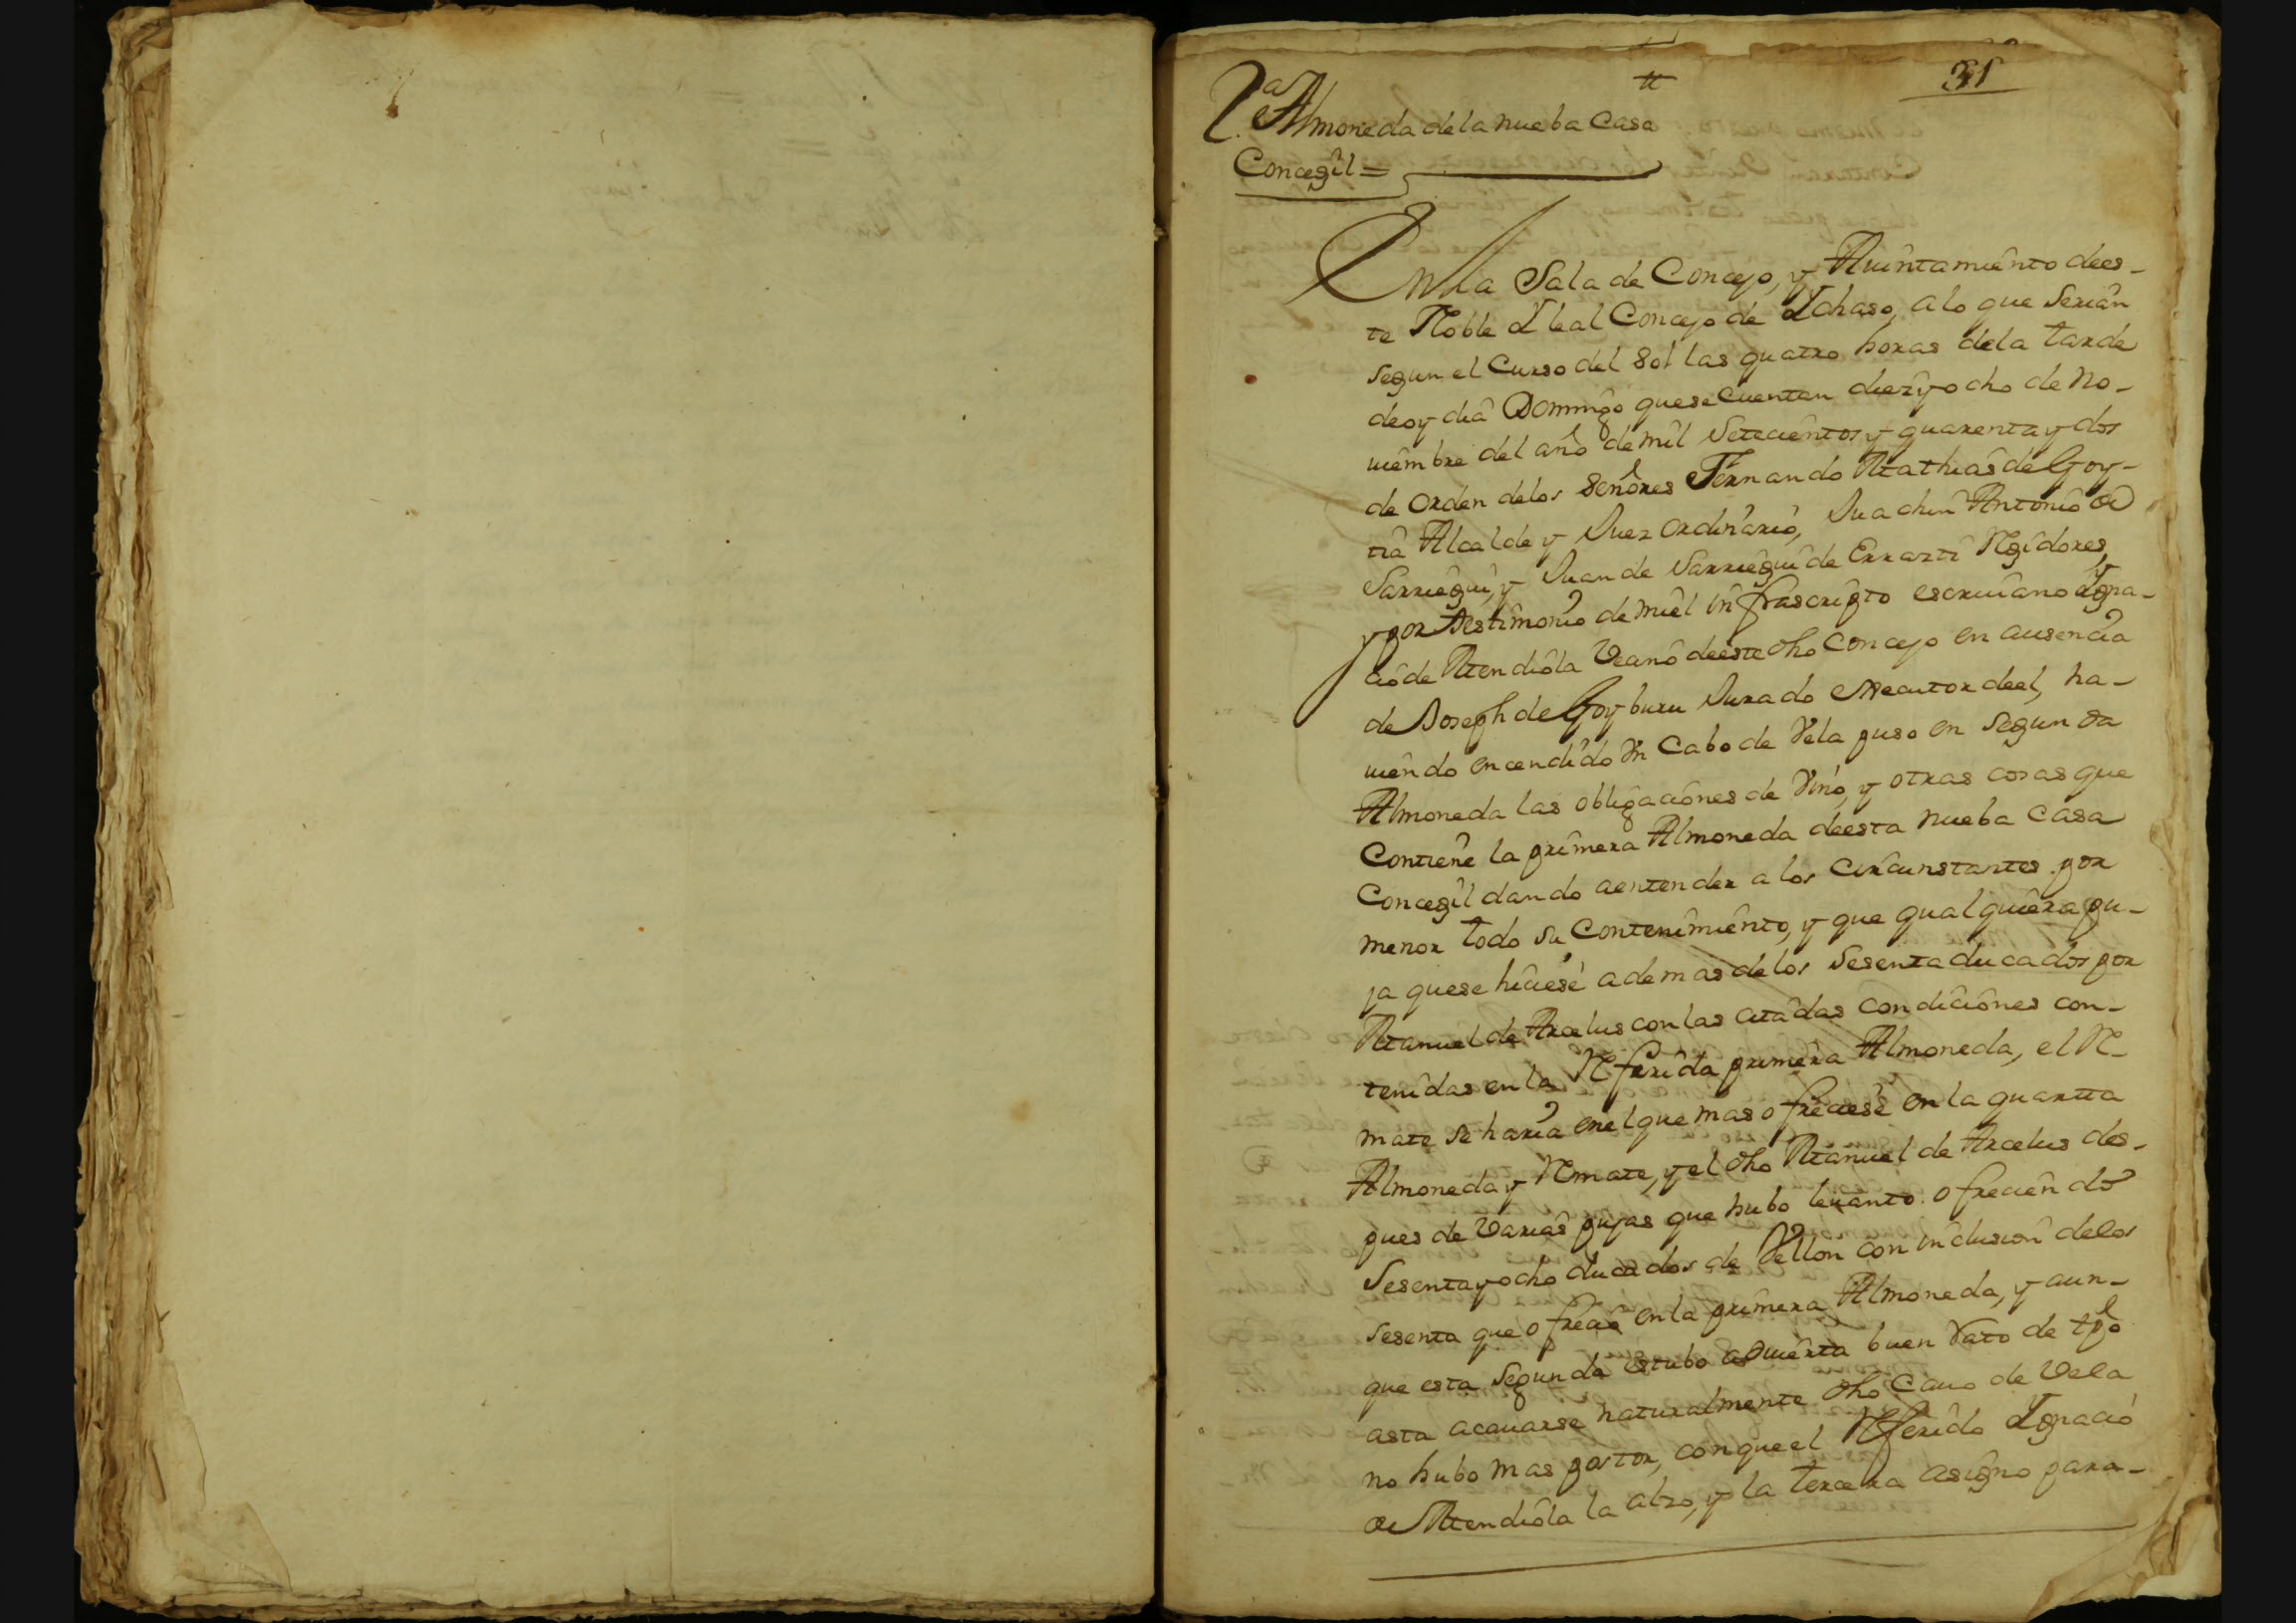 31
2.ª Almoneda de la nueba Casa
Concegil =
En la Sala de Concejo, y Auintamiento dees-
te Noble Y leal Concejo de Ychaso, a lo que serian
segun el Curso del Sol las quatro horas dela tarde
deoy dia Domingo quese Cuentan diez y ocho de no-
uiembre del año de mil Setecientos y quarenta y dos
de orden delos Señores Fernando Mathias de Goy-
tia Alcalde y Juez ordinario, Juachin Antonio de
Sarriegui, y Juan de Sarriegui de Errazti Regidores,
y por testimonio de mi el infrascripto escriuano Ygna-
cio de Mendiola Veano deeste dho Concejo en ausencia
de Joseph de Goyburu Jurado executor deel, ha-
uiendo encendido Un Cabo de Vela puso en segunda
Almoneda las obligaciones de Vino, y otras cosas que
Contiene la primera Almoneda deesta nueba Casa
Concegil dando aentender a los Circunstantes por
menor todo su Contenimiento, y que qualquiera pu-
ja quese hiciese ademas delos Sesenta ducados por
Manuel de Arcelus con las citadas condiciones con-
tenidas en la Referida primera Almoneda, el Re-
mate se haria enel que mas ofreciese en la quarta
Almoneda y Remate, y el dho Manuel de Arcelus des-
pues de Varias pujas que hubo leuanto ofreciendo
Sesenta y ocho ducados de Vellon con inclusion delos
sesenta que ofrecio en la primera Almoneda, y aun-
que esta segunda estubo abierta buen rato de tpo
asta acauarse naturalmente dho Cauo de Vela
no hubo mas postor, con queel Referido Ygnacio
de Mendiola la alzo, y la tercera asigno para-